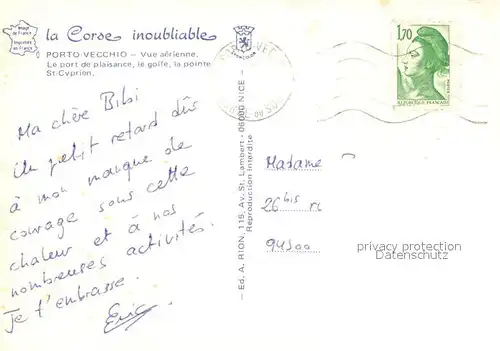 Image de France
Imprimée en France
la Corse inoubliable
PORTO-VECCHIO — Vue aérienne.
Le port de plaisance, le golfe, la pointe
St-Cyprien.
1,70
REPUBLIQUE FRANÇAISE
Ma chère Bibi
Un petit retard dûs
à mon manque de
courage sous cette
chaleur et à nos
nombreuses activités.
Je t'embrasse.
Eric.
— Ed. A. RION, 116, Av. St. Lambert - 06000 NICE —
Reproduction interdite
Madame
26 bis r
94500
privacy protection
Datenschutz